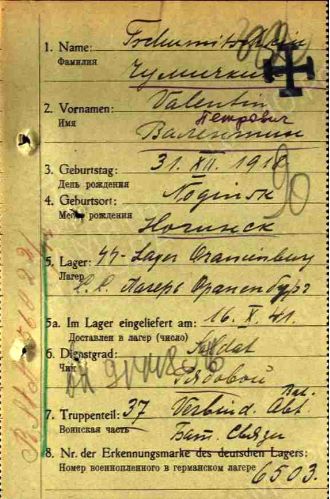 1. Name: Tschumitschkin
Фамилия Чумичкин
2. Vornamen: Valentin
Имя Петрович
Валентин
3. Geburtstag: 31. XII. 1918
День рождения
4. Geburtsort: Noginsk
Место рождения Ногинск
5. Lager: SS-Lager Oranienburg
Лагерь С.С. Лагерь Ораненбург
5a. Im Lager eingeliefert am: 16. X. 41.
Доставлен в лагерь (число)
6. Dienstgrad: Soldat
Чин Рядовой
7. Truppenteil: 37 Verbind. Bat. Abt.
Воинская часть Бат. Связи
8. Nr. der Erkennungsmarke des deutschen Lagers:
Номер военнопленного в германском лагере 6503.